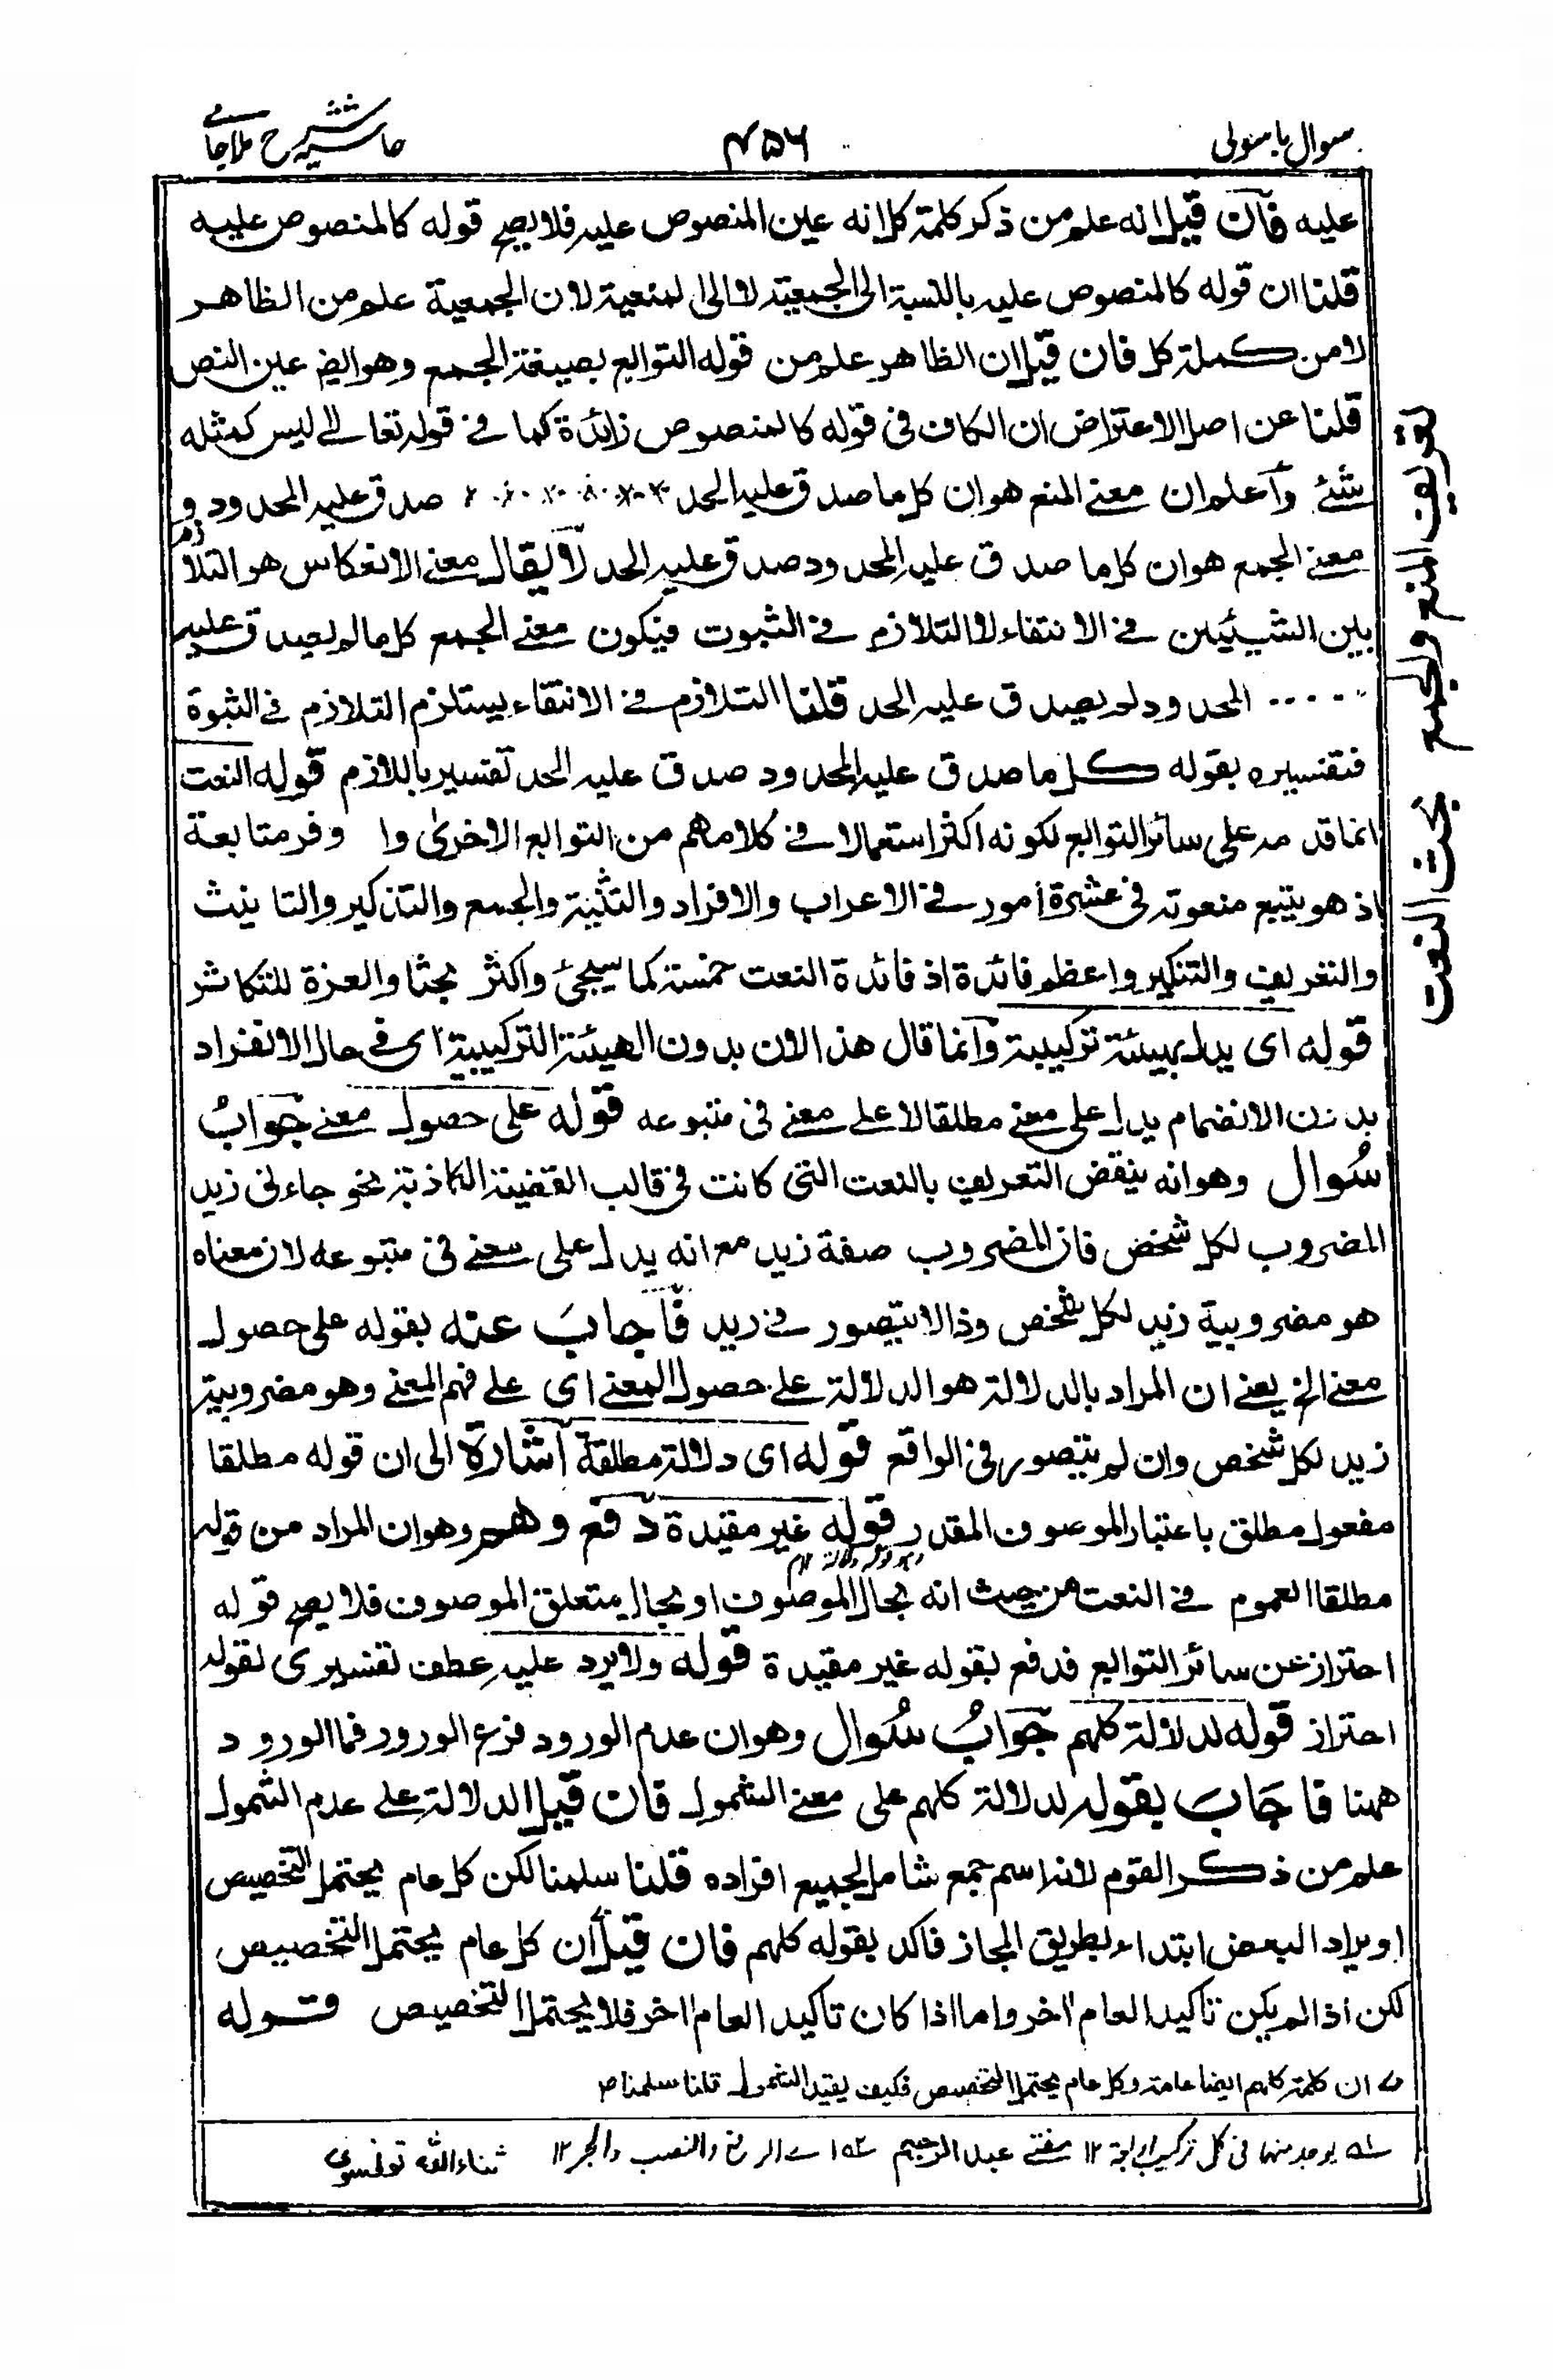 سوال باسولی
۴۵۶
حاشیہ شرح ملا جامی
علیه فان قیل انه علم من ذکر کلمة کل انه عین المنصوص علیه فلا یصح قوله کالمنصوص علیه
قلنا ان قوله کالمنصوص علیه بالنسبة الی الجمعیة لا الی المنعیة لان الجمعیة علم من الظاهر
لا من کلمة کل فان قیل ان الظاهر علم من قوله التوابع بصیغة الجمع وهو ایضا عین النص
قلنا عن اصل الاعتراض ان الکاف فی قوله کالمنصوص زائدة کما فی قوله تعالی لیس کمثله
شئ واعلم ان معنے المنع هو ان کل ما صدق علیه الحد صدق علیه المحدود و
معنے الجمع هو ان کل ما صدق علیه المحدود صدق علیه الحد لا یقال معنے الانعکاس هو التلازم
بین الشیئین فی الانتفاء لا التلازم فی الثبوت فیکون معنے الجمع کل ما لم یصدق علیه
..... المحدود لم یصدق علیه الحد قلنا التلازم فی الانتفاء یستلزم التلازم فی الثبوة
فتفسیره بقوله کل ما صدق علیه المحدود صدق علیه الحد تفسیر باللازم قوله النعت
انما قدمه علی سائر التوابع لکونه اکثر استعمالا فی کلامهم من التوابع الاخری وا وفر متابعة
اذ هو یتبع منعوته فی عشرة امور فی الاعراب والافراد والتثنیة والجمع والتذکیر والتانیث
والتعریف والتنکیر واعظم فائدة اذ فائدة النعت خمسة کما سیجئ واکثر بحثا والعزة للتکاثر
قوله ای یدل بهیئة ترکیبیة وانما قال هذا لان بدون الهیئة الترکیبیة ای فی حال الانفراد
بدون الانضمام یدل علی معنے مطلقا لا علے معنے فی متبوعه قوله علی حصول معنے جواب
سوال وهو انه ینقض التعریف بالنعت التی کانت فی قالب القضیة الکاذبة نحو جاءنی زید
المضروب لکل شخص فان المضروب صفة زید مع انه یدل علی معنے فی متبوعه لان معناه
هو مضروبیة زید لکل شخص وذا لا یتصور فی زید فاجاب عنه بقوله علی حصول
معنے الخ یعنے ان المراد بالدلالة هو الدلالة علے حصول المعنے ای علے فهم المعنے وهو مضروبیة
زید لکل شخص وان لم یتصور فی الواقع قوله ای دلالة مطلقة اشارة الی ان قوله مطلقا
مفعول مطلق باعتبار الموصوف المقدر قوله غیر مقیدة دفع وهم وهو ان المراد من قوله
وهو قوله دلالة ۱۲م
مطلقا العموم فی النعت من حیث انه بحال الموصوف او بحال متعلق الموصوف فلا یصح قوله
احتراز عن سائر التوابع فدفع بقوله غیر مقیدة قوله ولا یرد علیه عطف تفسیری لقوله
احتراز قوله لدلالة کلهم جواب سوال وهو ان عدم الورود فرع الورود فما الورود
ههنا فاجاب بقوله لدلالة کلهم علی معنے الشمول فان قیل الدلالة علے عدم الشمول
علم من ذکر القوم لانه اسم جمع شامل لجمیع افراده قلنا سلمنا لکن کل عام یحتمل التخصیص
او یراد البعض ابتداء بطریق المجاز فاکد بقوله کلهم فان قیل ان کل عام یحتمل التخصیص
لکن اذا لم یکن تاکید العام اخر واما اذا کان تاکید العام اخر فلا یحتمل التخصیص قوله
ان کلمة کلهم ایضا عامة وکل عام یحتمل التخصیص فکیف یفید الشمول قلنا سلمنا
یوجد منها فی کل ترکیب اربعة ۱۲ مفتے عبد الرحیم ای الرفع والنصب والجر ۱۲ ثناء الله تونسوی
تعریف المنع والجمع
بحث النعت